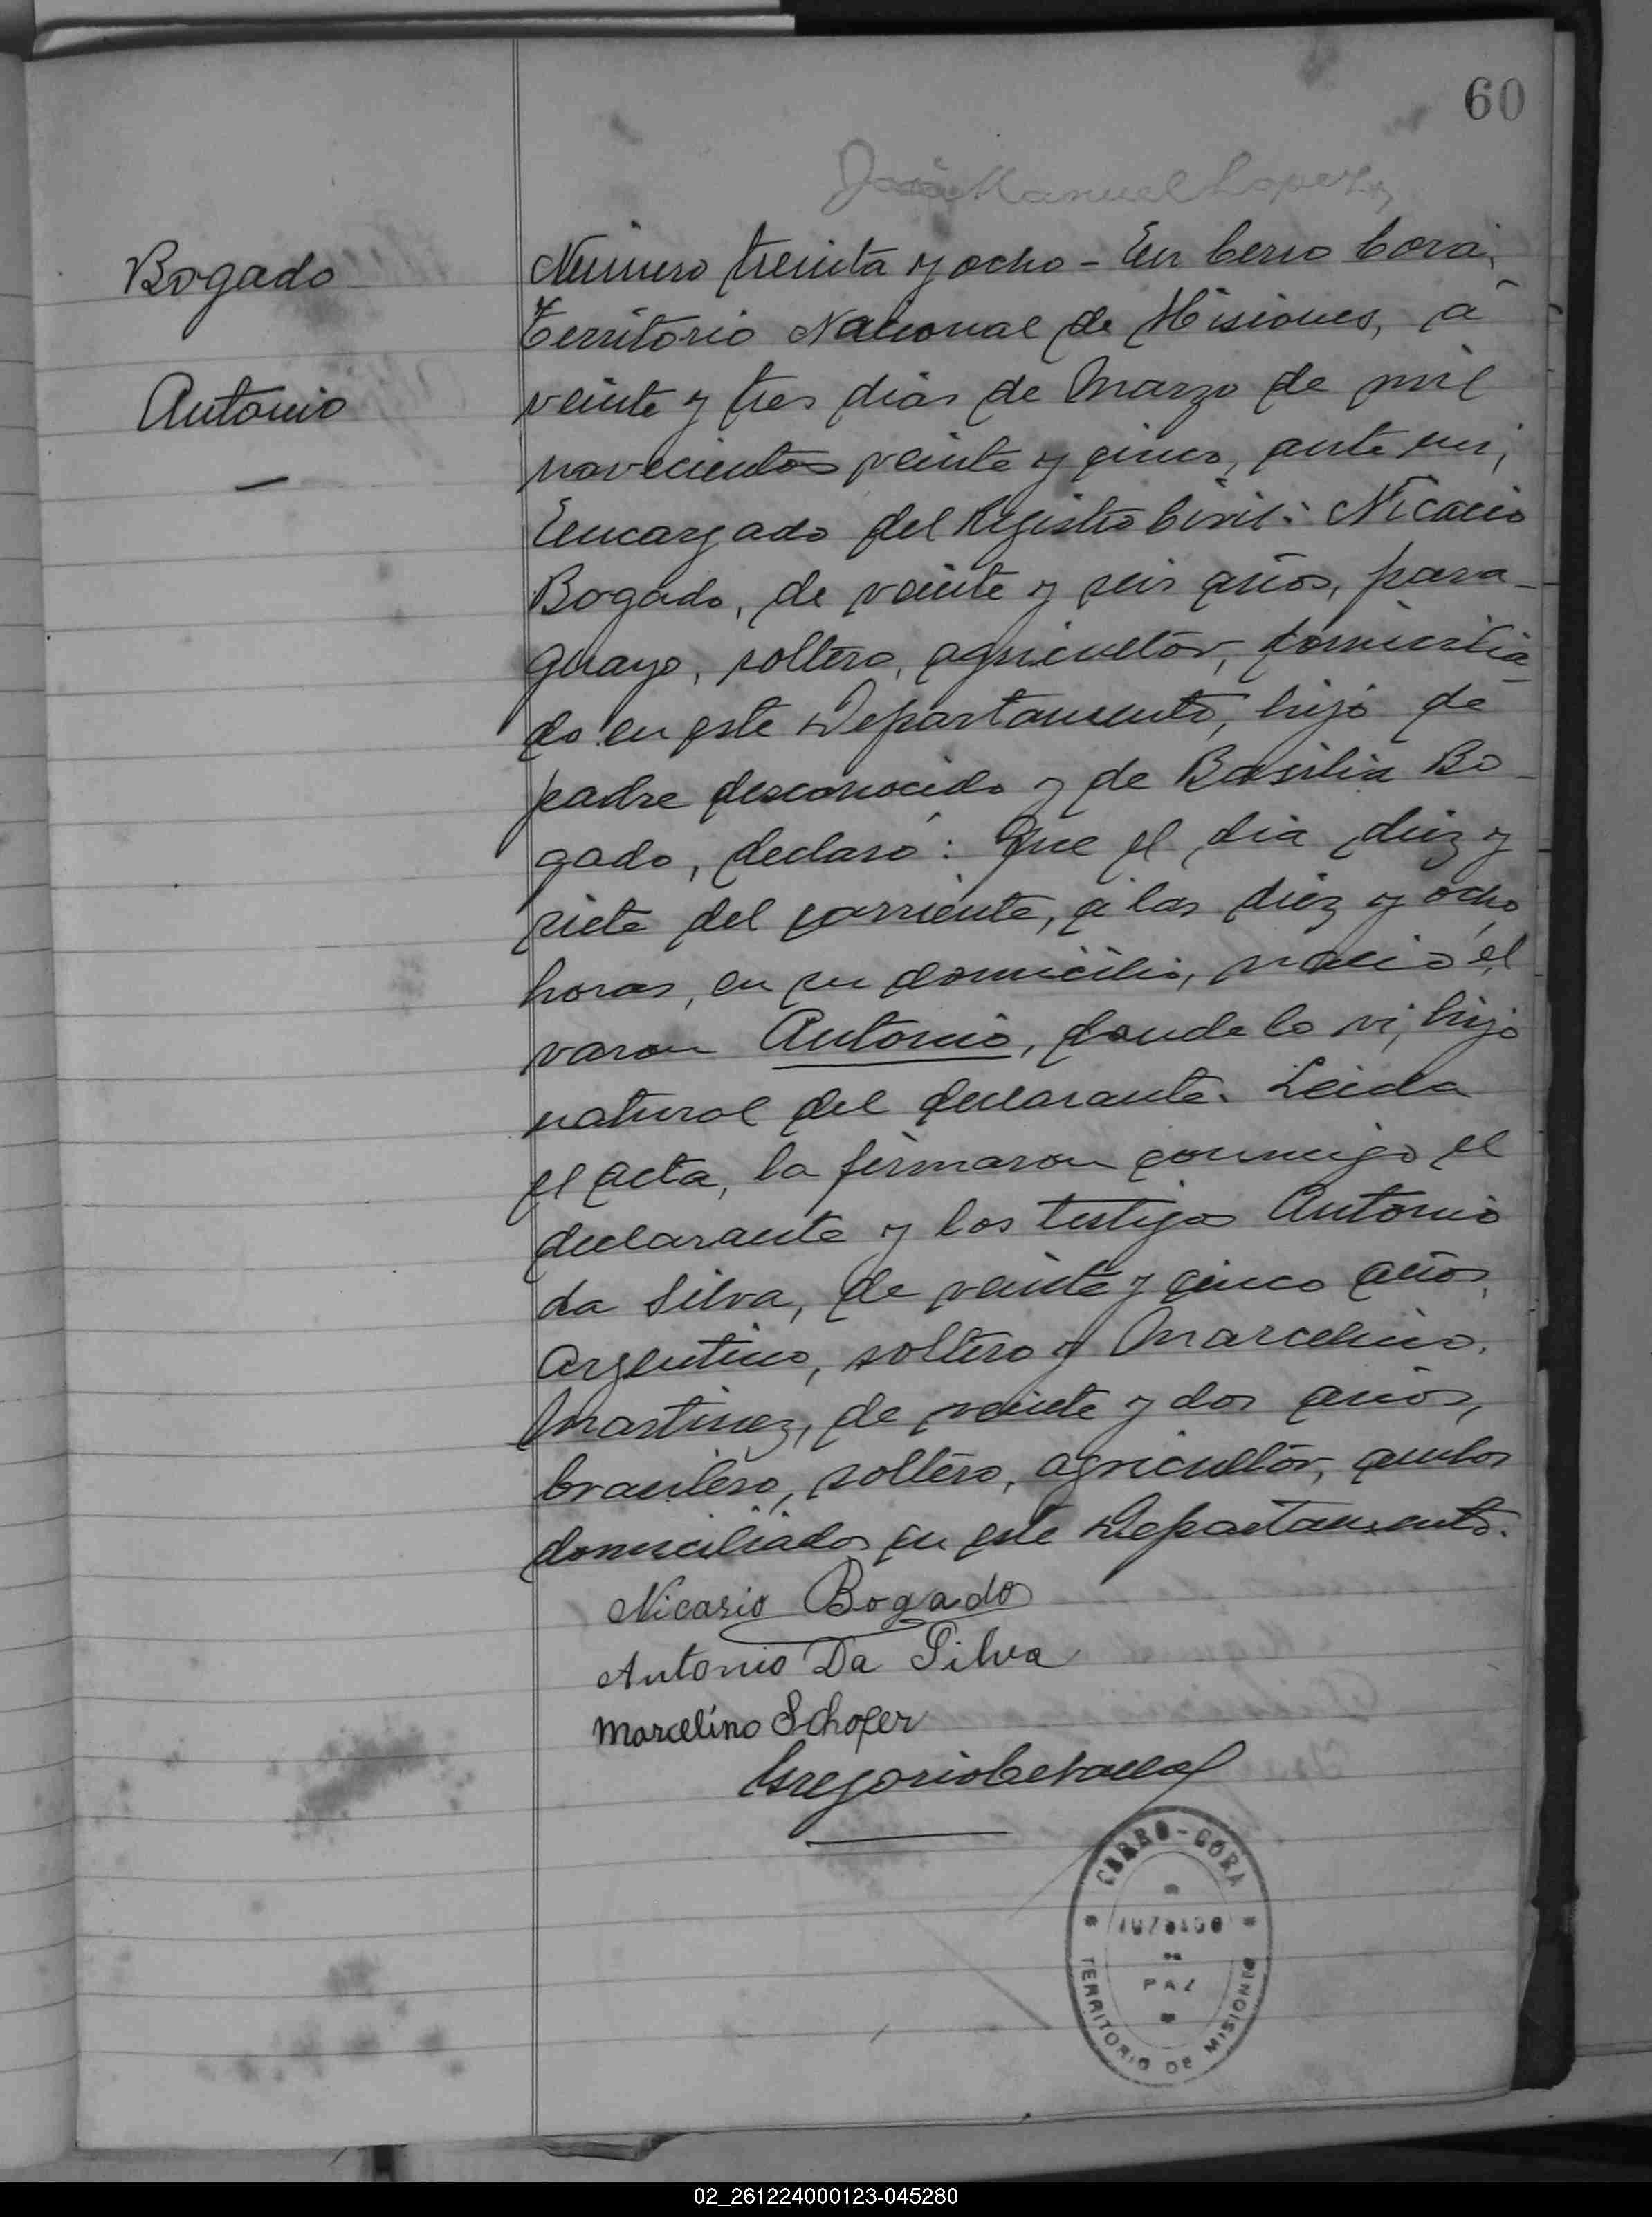 60
José Manuel Lopez
Bogado
Antonio
Número treinta y ocho - En Cerro Corá,
Territorio Nacional de Misiones, a
veinte y tres dias de Marzo de mil
novecientos veinte y cinco, ante mi,
Encargado del Registro Civil: Nicacio
Bogado, de veinte y seis años, para-
guayo, soltero, agricultor, domicilia-
do en este Departamento, hijo de
padre desconocido y de Basilia Bo-
gado, declaró: Que el dia diez y
siete del corriente, a las diez y ocho
horas, en su domicilio, nació el
varon Antonio, donde lo vi, hijo
natural del declarante. Leida
el acta, la firmaron conmigo el
declarante y los testigos Antonio
da Silva, de veinte y cinco años,
argentino, soltero y Marcelino
Martinez, de veinte y dos años,
brasilero, soltero, agricultor, ambos
domiciliados en este Departamento.
Nicasio Bogado
Antonio Da Silva
Marcelino Schofer
Gregorio
CERRO-CORA
JUZGADO
DE
PAZ
TERRITORIO DE MISIONES
02_261224000123-045280